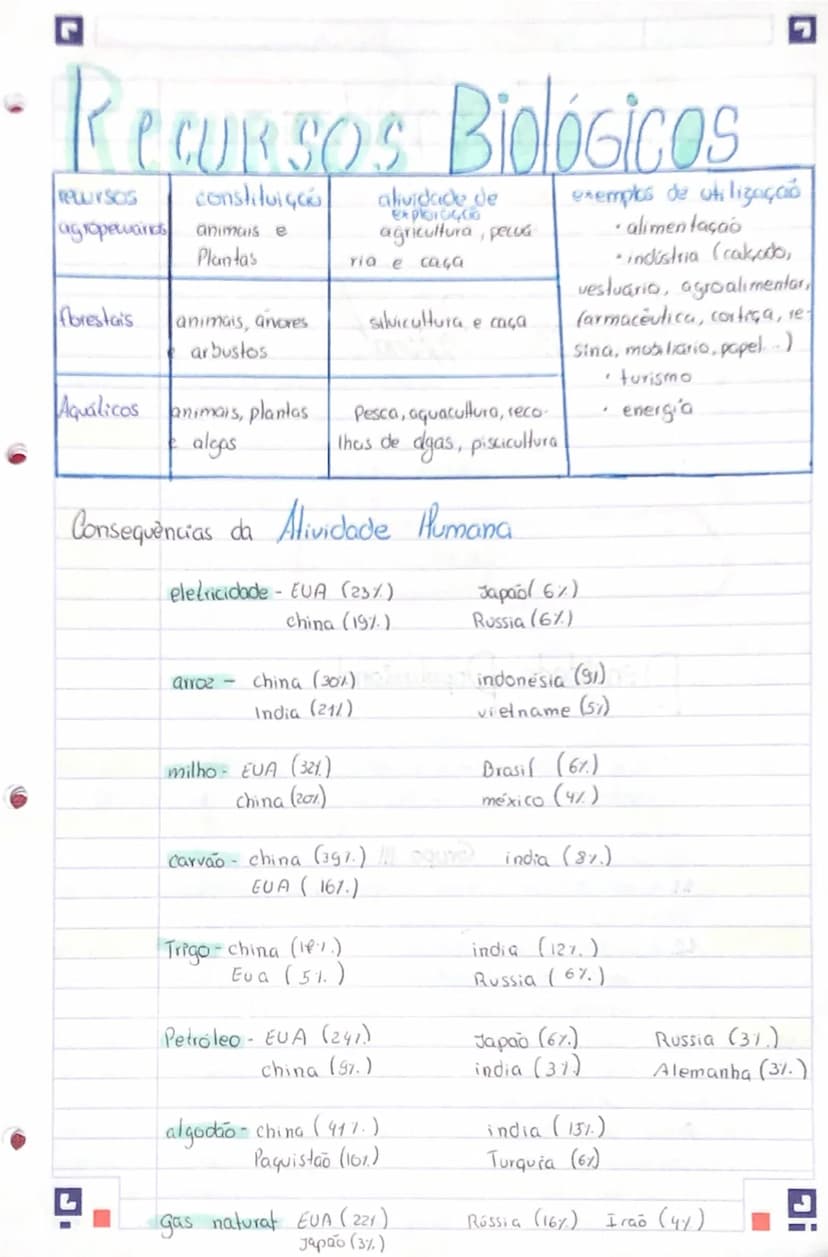 Recursos Biológicos
recursos constituição atividade de exploração exemplos de utilização
agropecuários animais e Plantas agricultura, pecuária e caça
• alimentação
• indústria (calçado, vestuário, agroalimentar, farmacêutica, cortiça, resina, mobiliário, papel...)
• turismo
• energia
florestais animais, árvores e arbustos silvicultura e caça
Aquáticos animais, plantas e algas Pesca, aquacultura, recolhas de algas, piscicultura
Consequências da Atividade Humana
eletricidade - EUA (23%) Japão (6%)
china (19%) Russia (6%)
arroz - china (30%) indonésia (9%)
India (21%) vietname (5%)
milho - EUA (32%) Brasil (6%)
china (20%) méxico (4%)
carvão - china (39%) india (8%)
EUA (16%)
Trigo - china (18%) india (12%)
Eua (5%) Russia (6%)
Petróleo - EUA (24%) Japão (6%) Russia (3%)
china (9%) india (3%) Alemanha (3%)
algodão - china (41%) india (13%)
Paquistão (10%) Turquia (6%)
gas natural EUA (22%) Rússia (16%) Irão (4%)
Japão (3%)